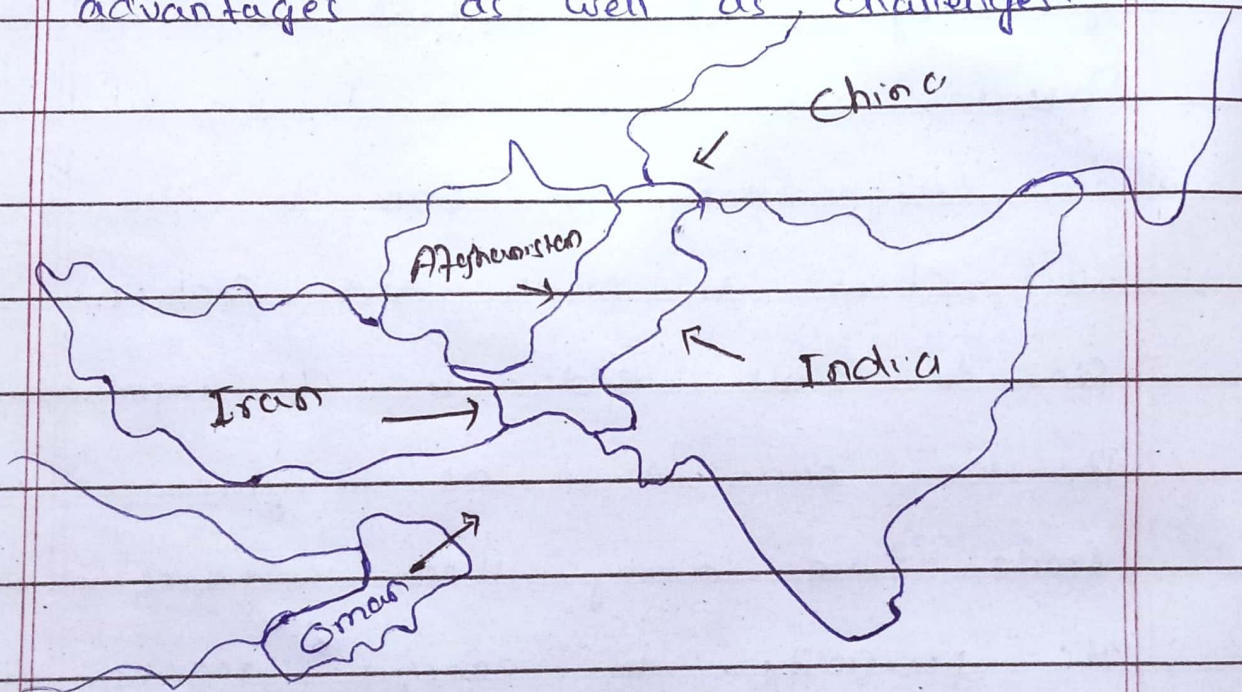 advantages as well as challenges.
China
Afghanistan
India
Iran
Oman